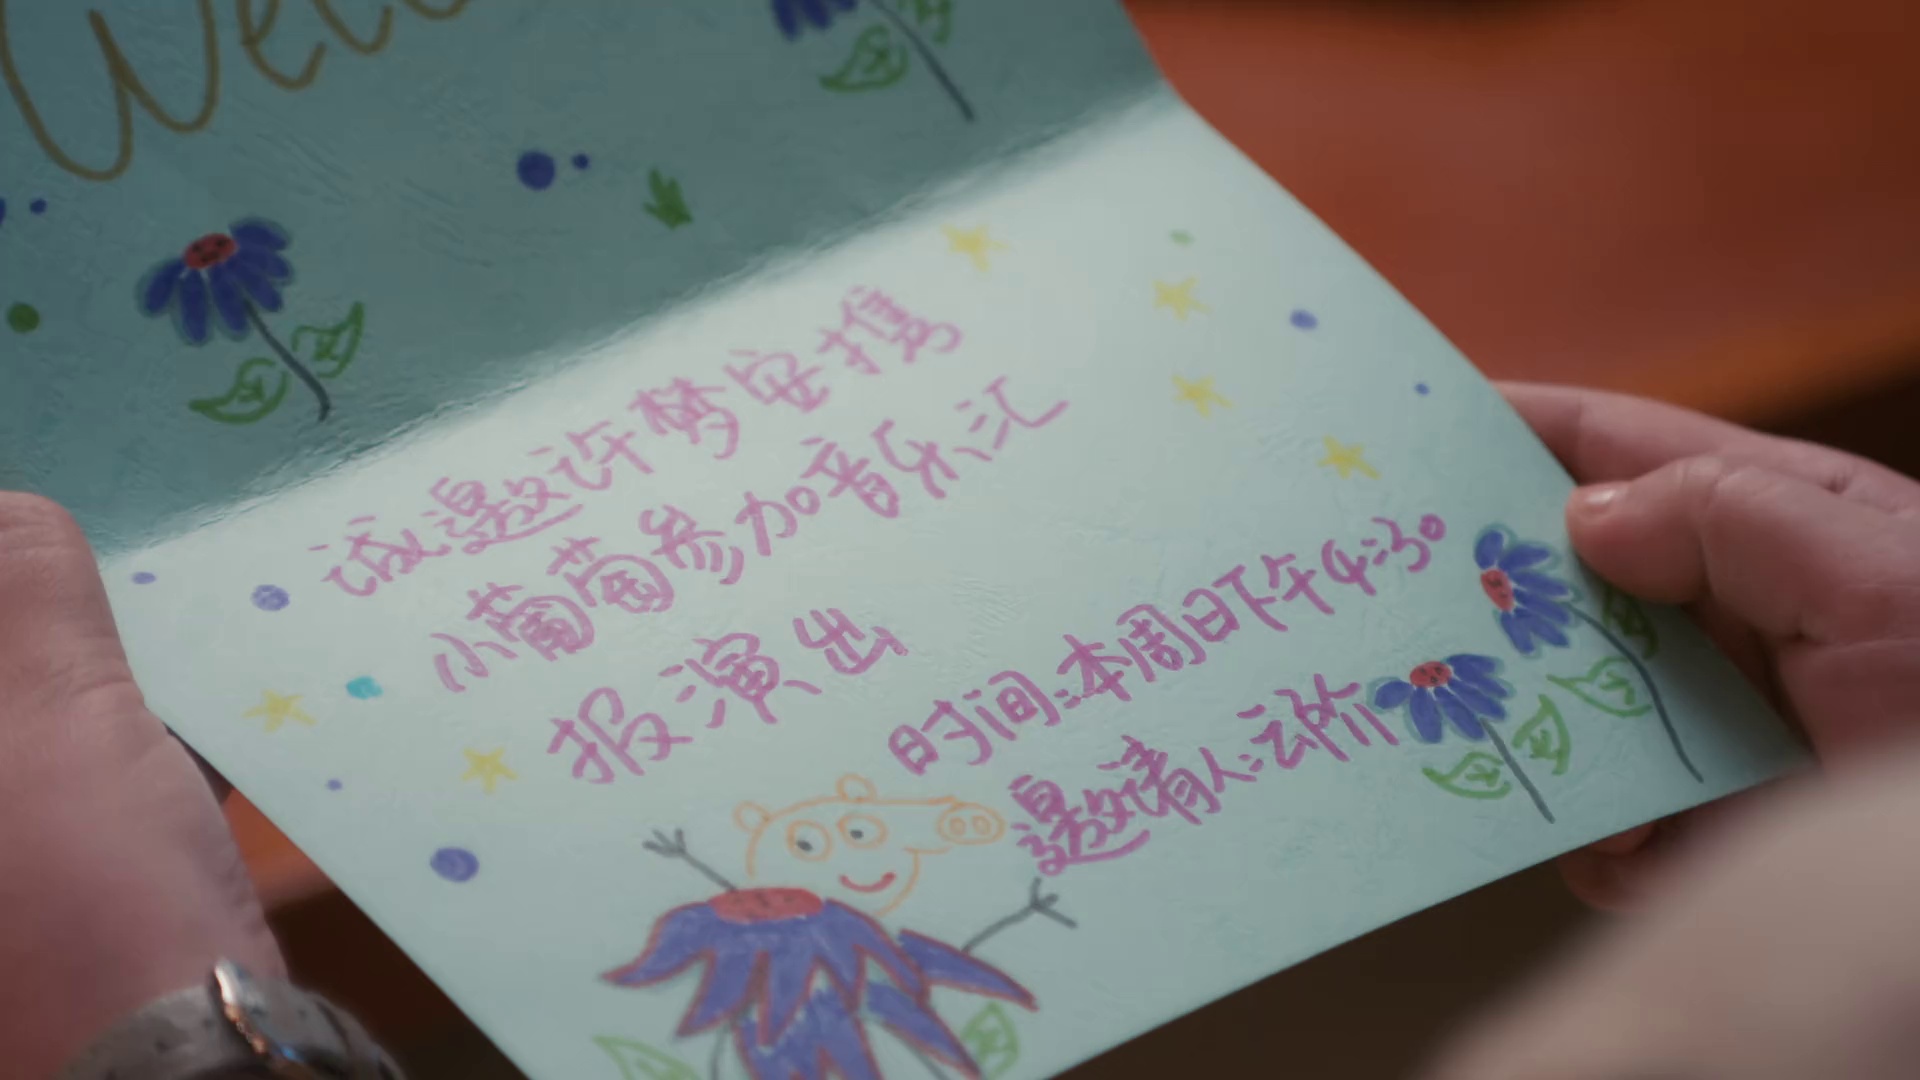 Welc
诚邀许梦安携
小葡萄参加音乐汇
报演出
时间:本周日下午4:30
邀请人:云阶